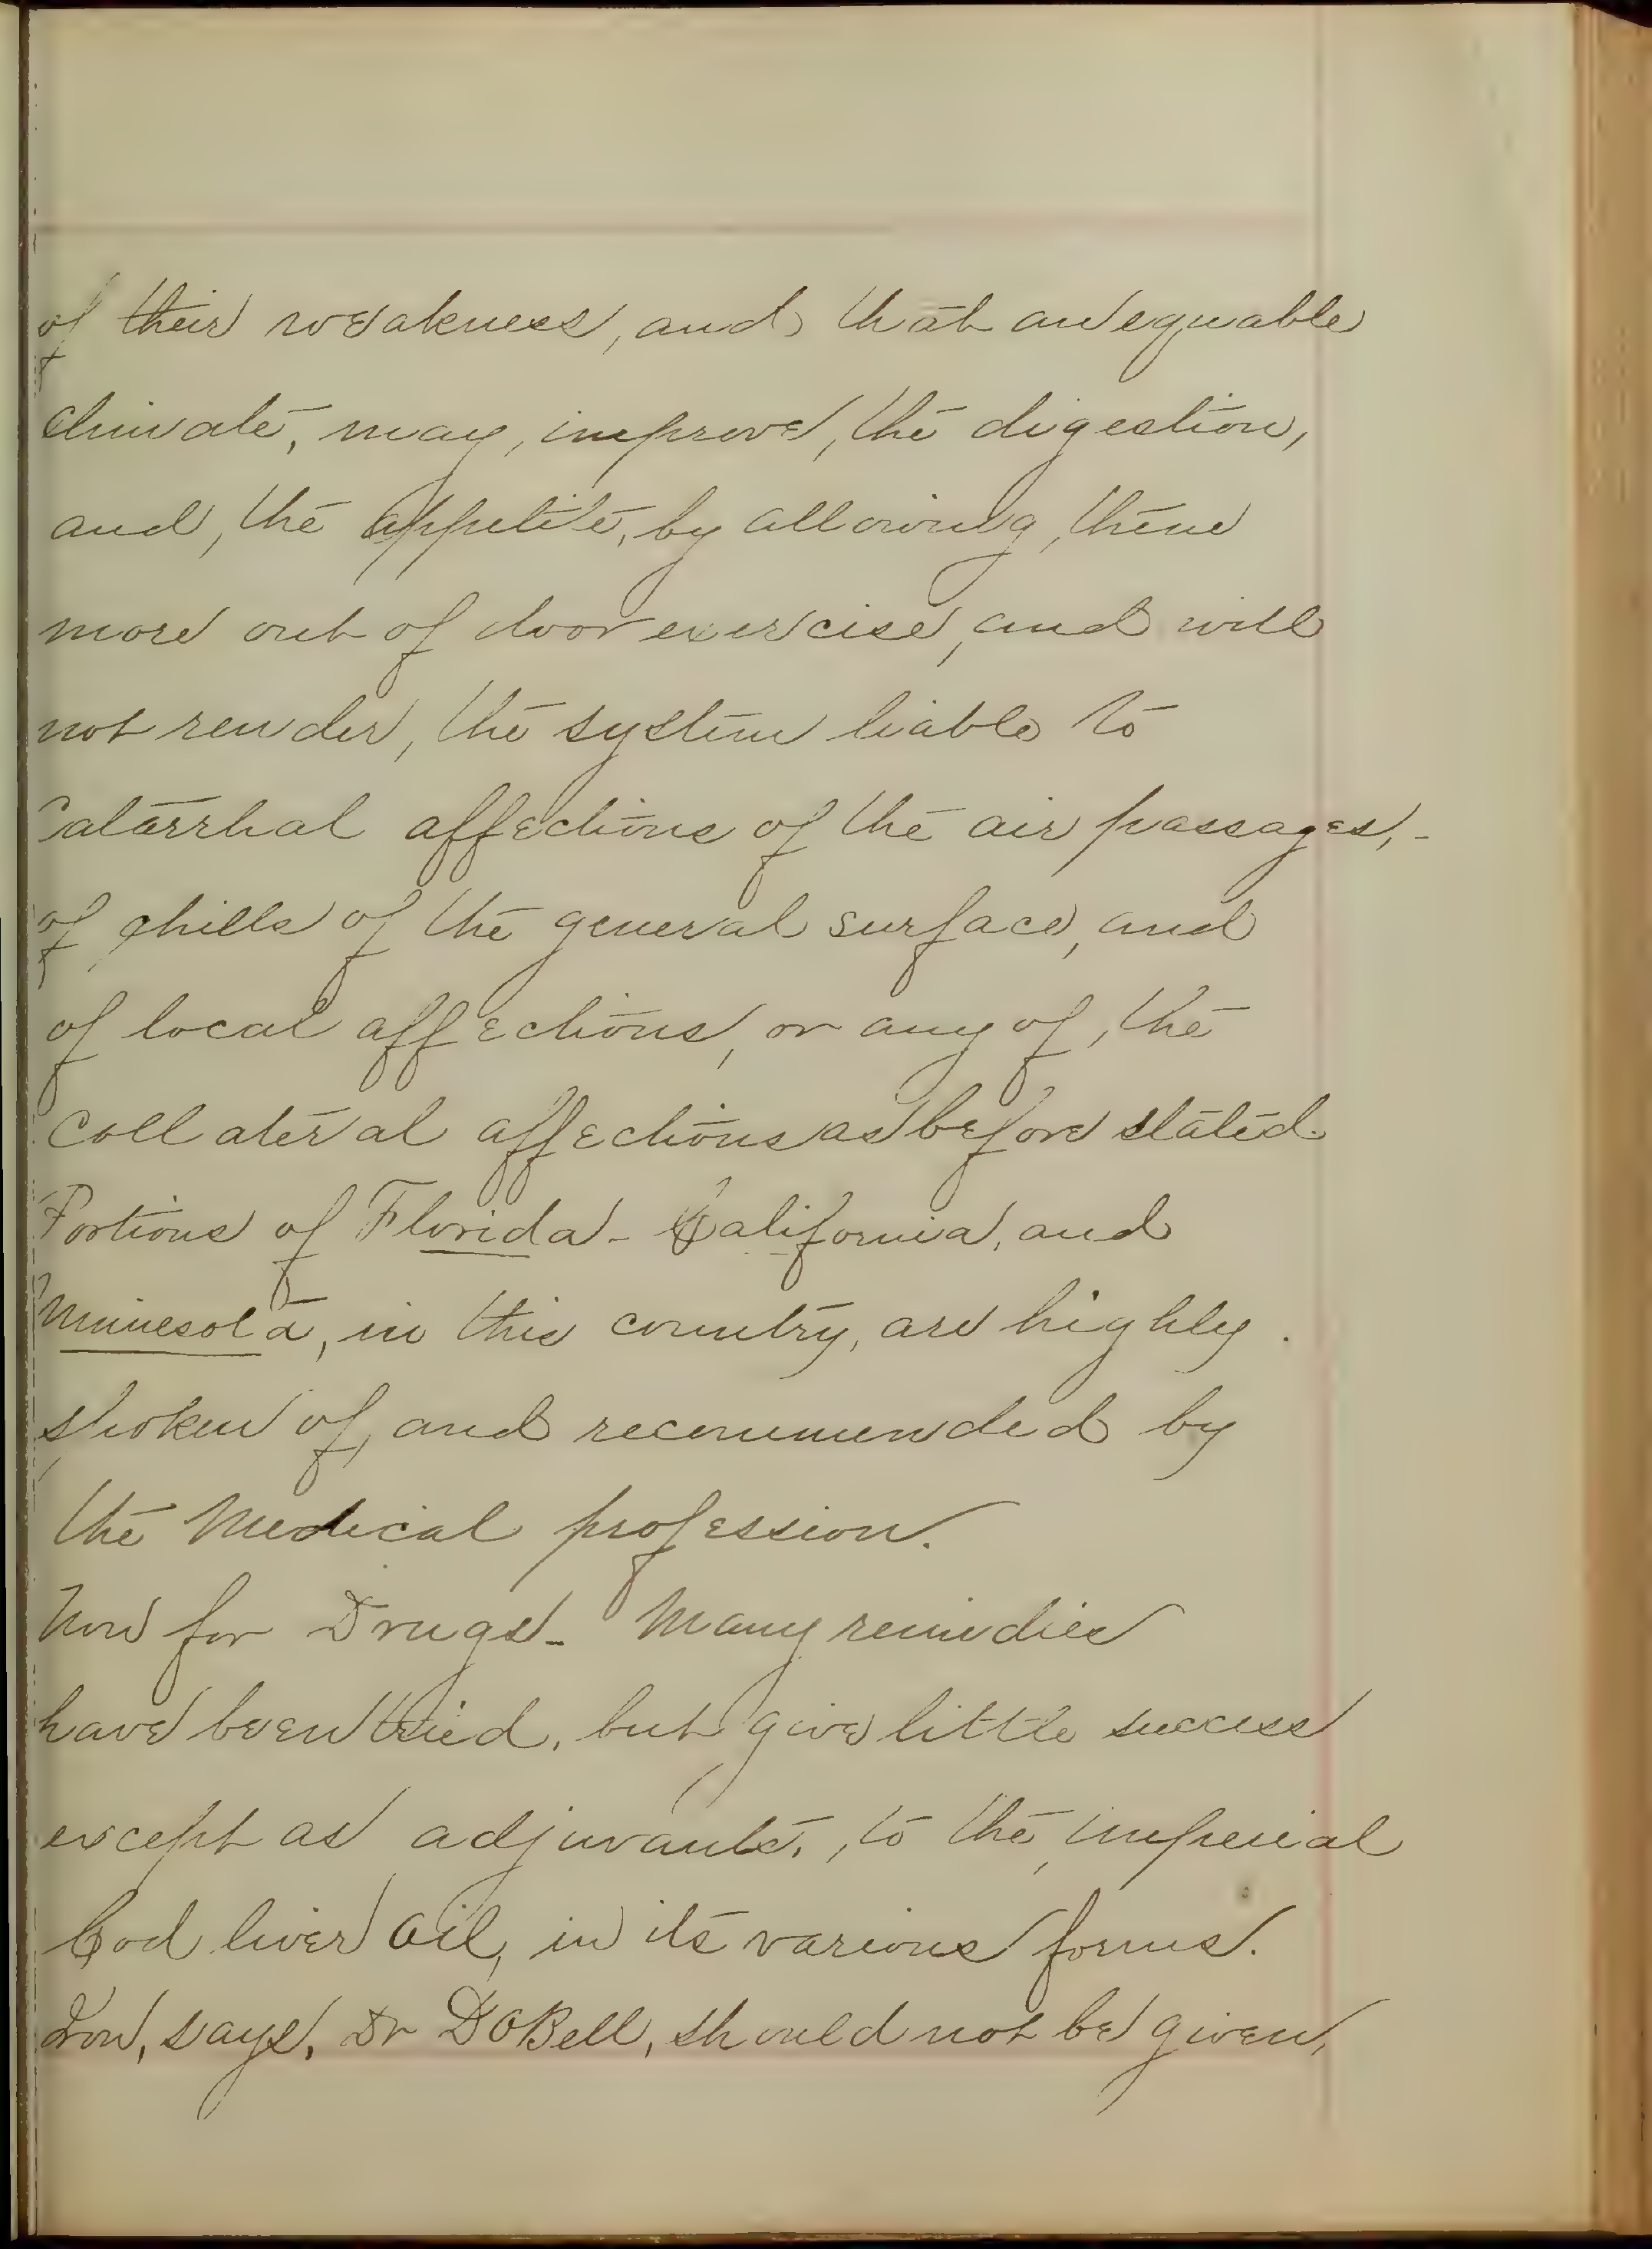 of their weakness, and that an equable
climate, may, improve, the digestion,
and, the appetite, by allowing, them
more out of door exercise, and will
not render, the system liable to
Catarrhal affections of the air passages,-
of chills of the general surface, and
of local affections, or any of, the
collateral affections as before stated.
Portions of Florida - California, and
Minnesota, in this country, are highly
spoken of, and recommended by
the Medical profession.
Now for Drugs - Many remedies
have been tried, but give little success
except as adjuvants, to the, imperial
Cod liver Oil, in its various forms.
Iron, says, Dr DOBell, should not be given,